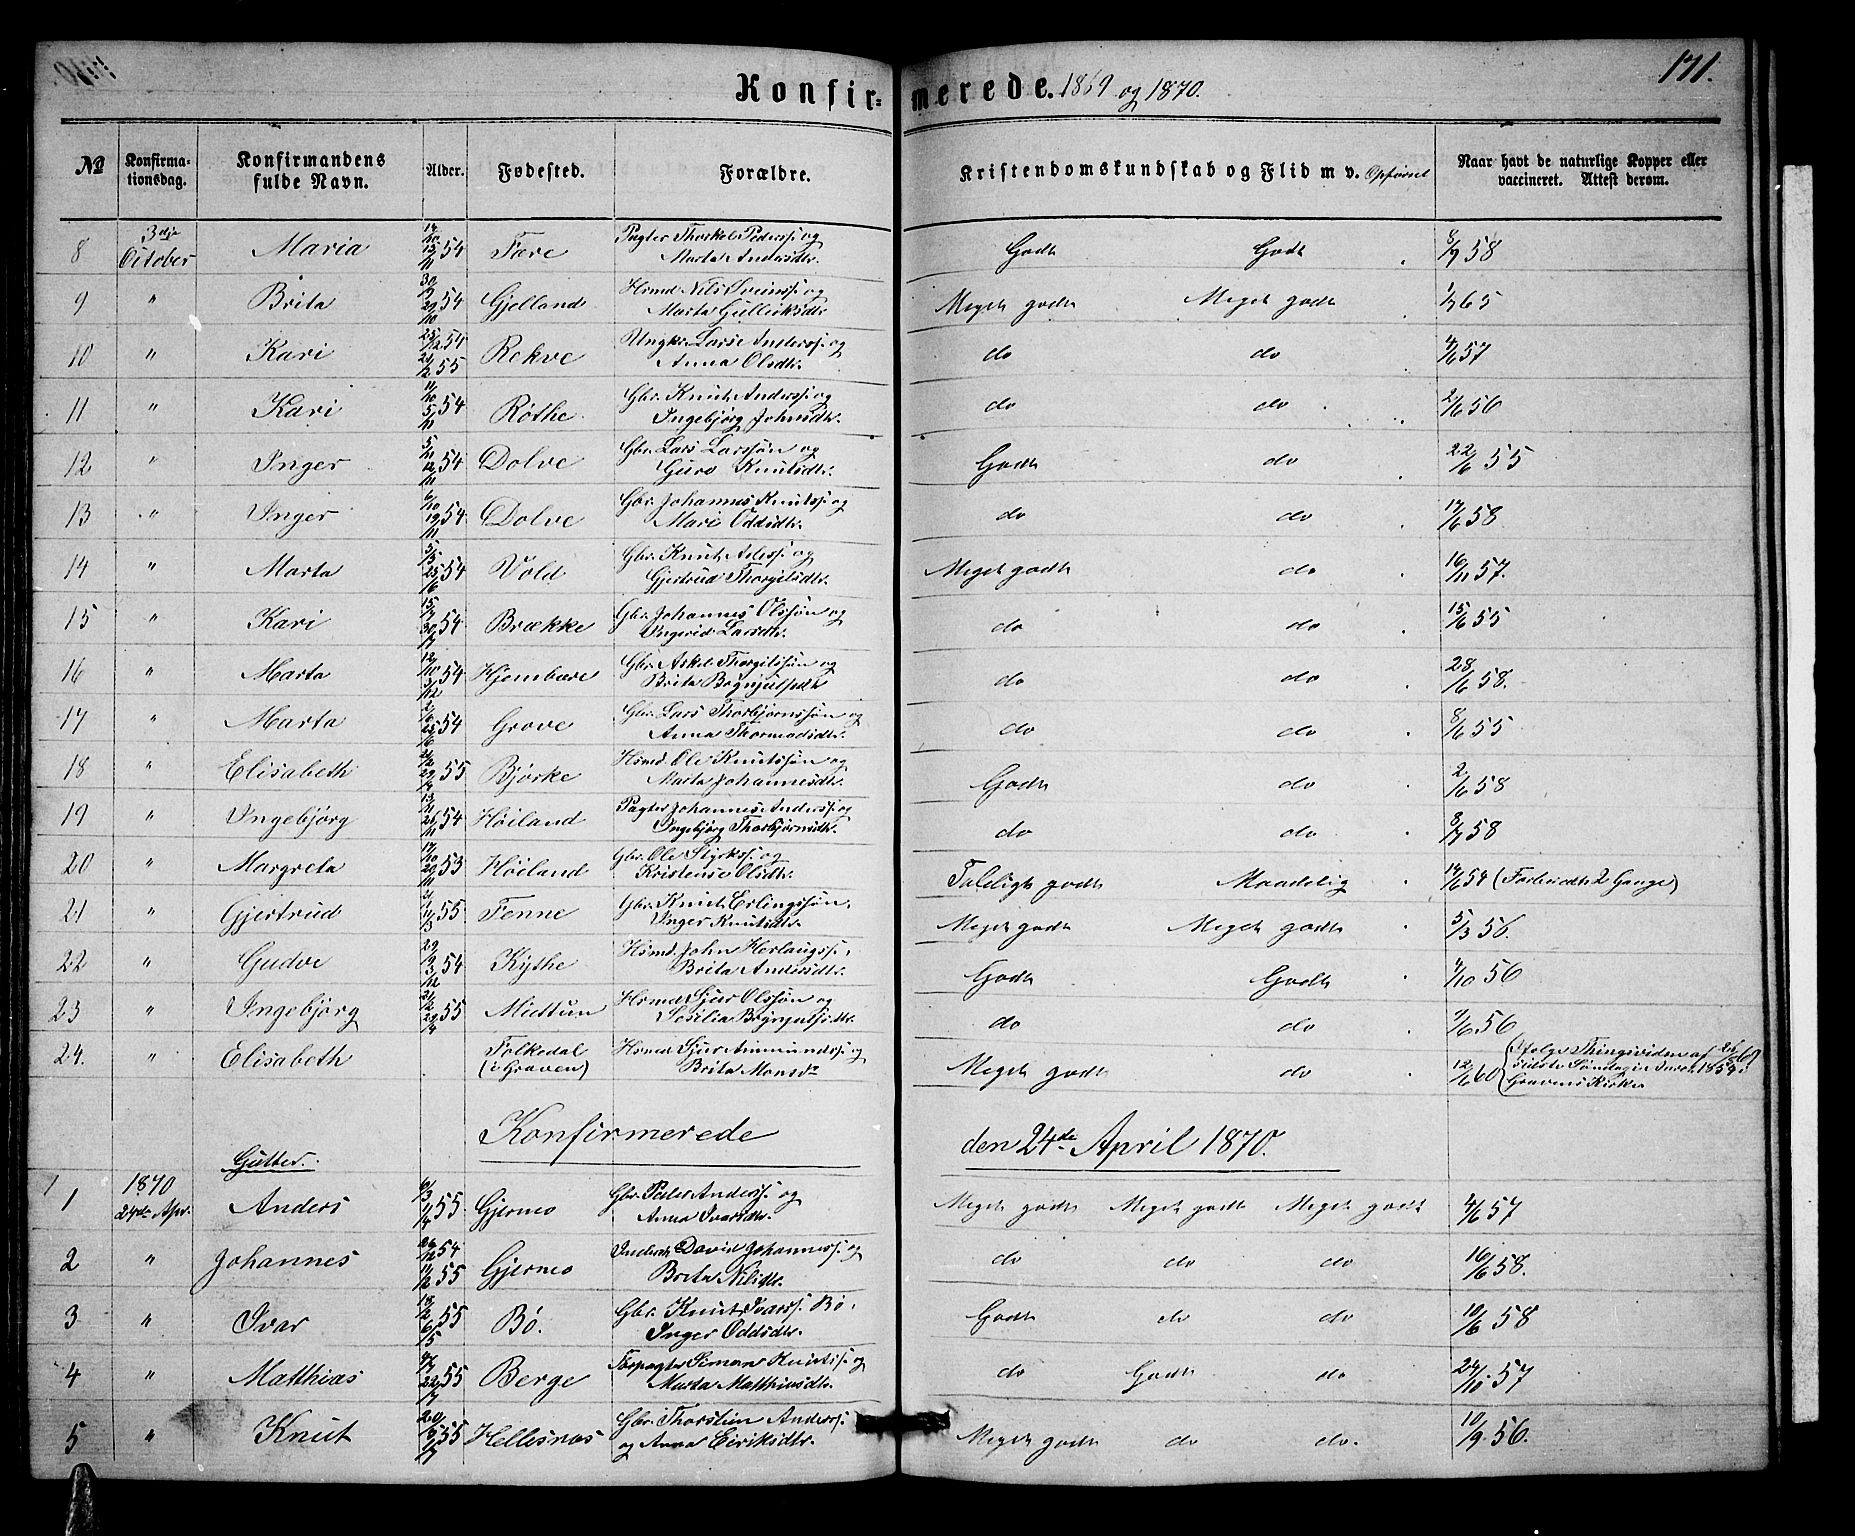 Konfir-merede. 1869 og 1870.
171.
No Konfirmationsdag. Konfirmandens fulde Navn. Alder. Fødested. Forældre. Kristendomskundskab og Flid m v. Opførsel Naar havt de naturlige Kopper eller vaccineret. Attest derom.
8 3die October Maria 54 Fære Pagter Thorkel Peders. og Marta Andersdtr. Godt Godt 8/9 58
9 " Brita 54 Gjelland Hsmd. Nils Sveins. og Marta Gulleiksdtr. Meget godt Meget godt 1/7 65
10 " Kari 54 55 Rekve Ungkr. Lars Anders. og Anna Olsdtr. do do 4/6 57
11 " Kari 54 Röthe Gbr. Knut Anders. og Ingebjörg Johnsdtr. do do 2/6 56
12 " Inger 54 Dolve Gbr. Lars Larssön og Guro Knutsdtr. Godt do 22/6 55
13 " Inger 54 Dolve Gbr. Johannes Knuts. og Mari Oddsdtr. do do 17/6 58
14 " Marta 54 Vold Gbr. Knut og Gjertrud Thorgilsdtr. Meget godt do 16/11 57.
15 " Kari 54 Brække Gbr. Johannes Olssön og Ingerid Larsdtr. do do 15/6 55
16 " Marta 54 Gbr. Askel Thorgilssön og Brita do do 28/6 58.
17 " Marta 54 Grove Gbr. Lars Thorbjörnssön og Anna Thormodsdtr. do do 8/6 55
18 " Elisabeth 55 Björke Hsmd. Ole Knutssön og Marta Johannesdtr. Godt do 2/6 58
19 " Ingebjörg 54 Höiland Pagter Johannes Anders. og Ingebjörg Thorbjörnsdtr. do do 8/7 58
20 " Margreta 53 Höiland Gbr. Ole Styrks. og Kristense Olsdtr. Taaleligt godt Maadelig 17/6 54 (Forbudt 2 Gange)
21 " Gjertrud 55 Tenne Gbr. Knut Erlingssön, Inger Knutsdtr. Meget godt Meget godt 5/3 56.
22 " Gudve 54 Kythe Hsmd. John Herlaugs., Brita Andersdtr. Godt Godt 4/10 56
23 " Ingebjörg 55 Midtun Hsmd. Sjur Olssön og Sesilia do do 56
24. " Elisabeth Folkedal (i Graven) Hsmd. Sjur Amunds. og Brita Monsdr Meget godt do 12/6 60 (ifølge Thingsvidne af sidste Söndag i 1854 Gravens Kirke
Konfirmerede den 24de April 1870.
Gutter.
1 1870 24de Apr. Anders 55 Gjerno Gbr. Peder Anders. og Anna Ivarsdtr. Meget godt Meget godt Meget godt 4/6 57
2 " Johannes 54 55 Gjerno Inderst David Johannes. og Brita Nilsdtr. do do do 16/6 58.
3 " Ivar 55 Bö. Gbr. Knut Ivars. Bö, Inger Oddsdtr. Godt do do 10/6 58
4 " Matthias 55 Berge Forpagter Simon Knuts. og Marta Matthiasdtr. do Godt do 24/10 57
5 " Knut 55 Hellesnæs Gbr. Thorstein Anders. og Anna Eiriksdtr. Meget godt do do. 10/9 56.